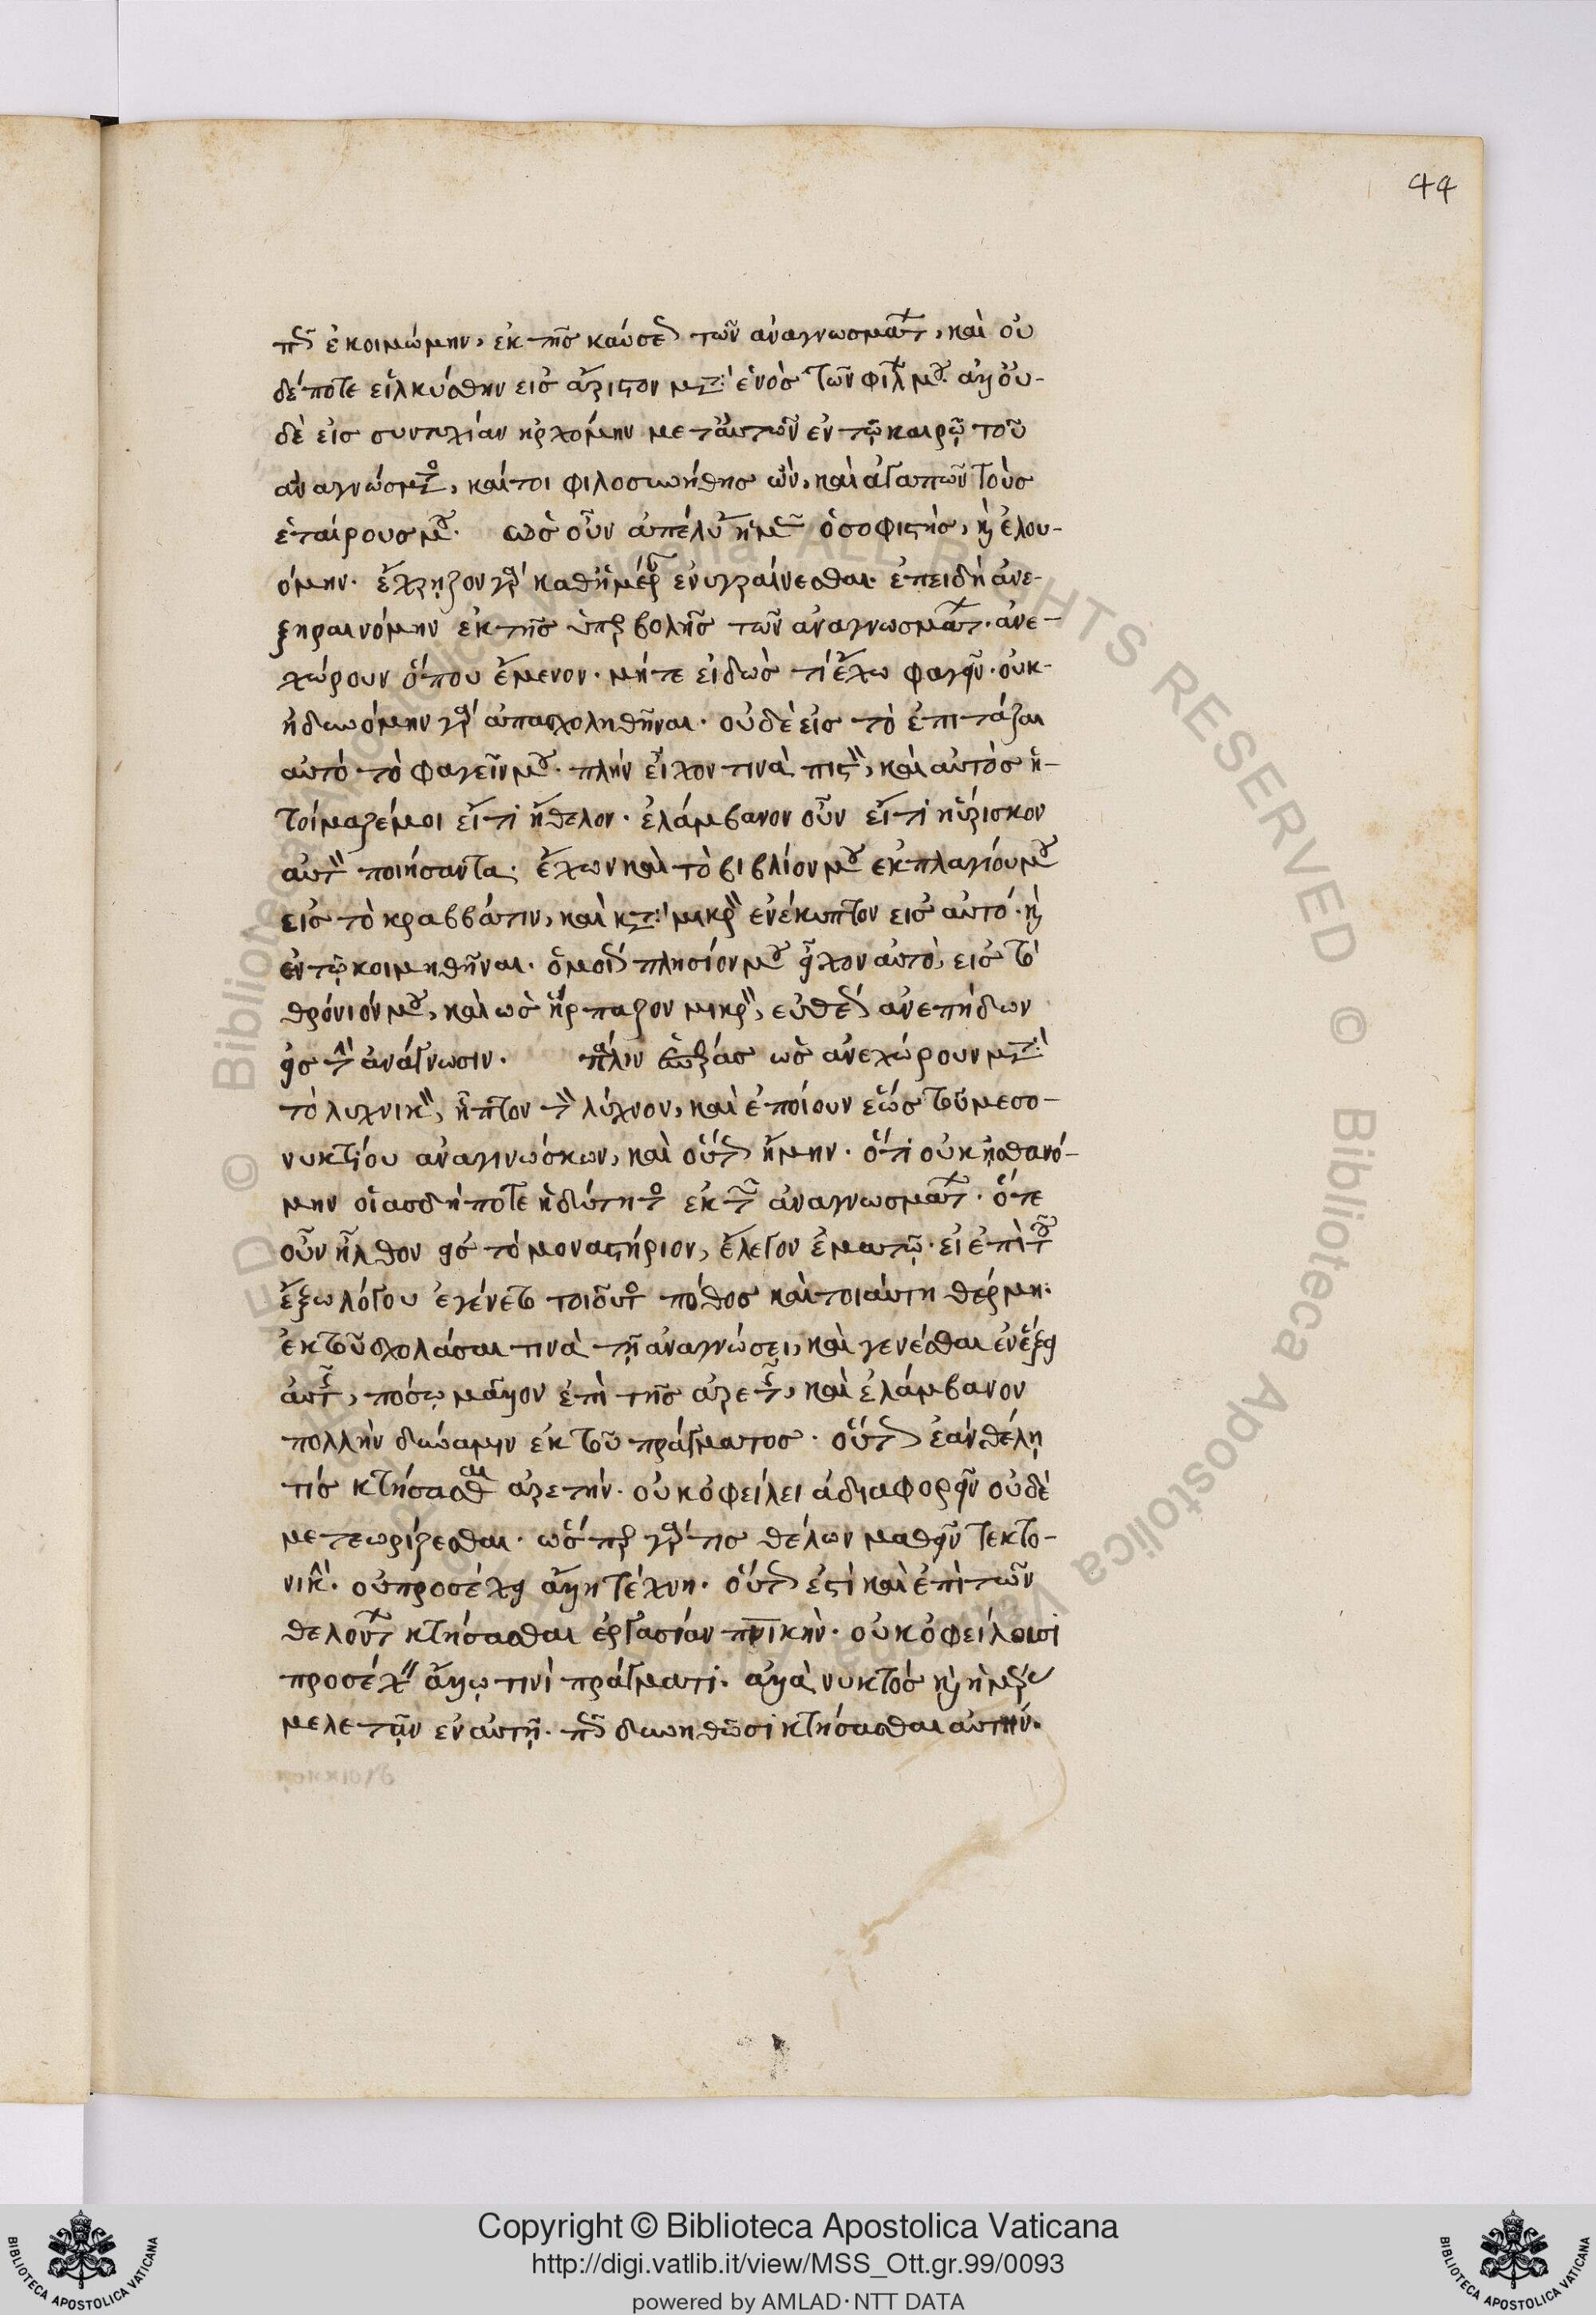 44
πῶς ἐκοιμώμην, ἐκ τῆς καύσεως τῶν ἀναγνωσμάτων, καὶ οὐ
δέποτε εἱλκύσθην εἰς ἄριστον μετὰ ἑνὸς τῶν φίλων μου. ἀλλ' οὐ-
δὲ εἰς συντυχίαν ἠρχόμην μετ' αὐτῶν ἐν τῷ καιρῷ τοῦ
ἀναγνώσματος, καίτοι φιλοσυνήθης ὢν, καὶ ἀγαπῶν τοὺς
ἑταίρους μου. ὡς οὖν ἀπέλυεν ἡμᾶς ὁ σοφιστής, καὶ ἐλου-
όμην. ἔχρῃζον γὰρ καθ' ἡμέραν ἐνυγραίνεσθαι. ἐπειδὴ ἀνε-
ξηραινόμην ἐκ τῆς ὑπερβολῆς τῶν ἀναγνωσμάτων. ἀνε-
χώρουν ὅπου ἔμενον. μήτε εἰδὼς τί ἔχω φαγεῖν. οὐκ
ἠδυνόμην γὰρ ἀπασχοληθῆναι. οὐδὲ εἰς τὸ ἐπιτάξαι
αὐτὸ τὸ φαγεῖν μου. πλὴν εἶχον τινὰ πιστὸν, καὶ αὐτὸς ἡ-
τοίμαζέ μοι εἴ τι ἤθελον. ἐλάμβανον οὖν εἴ τι ηὕρισκον
αὐτὸν ποιήσαντα. ἔχων καὶ τὸ βιβλίον μου ἐκ πλαγίου μου
εἰς τὸ κραββάτιν, καὶ κατὰ μικρὸν ἐνέκυπτον εἰς αὐτό. καὶ
ἐν τῷ κοιμηθῆναι. ὁμοίως πλησίον μου εἶχον αὐτὸ, εἰς τὸ
θρόνιόν μου, καὶ ὡς ἥρπαζον μικρὸν, εὐθέως ἀνεπήδων
εἰς τὴν ἀνάγνωσιν. πάλιν ἑσπέρας ὡς ἀνεχώρουν μετὰ
τὸ λυχνικὸν, ἧπτον τὸν λύχνον, καὶ ἐποίουν ἕως τοῦ μεσο-
νυκτίου ἀναγινώσκων, καὶ οὕτως ἤμην. ὅτι οὐκ ᾐσθανό-
μην οἱασδήποτε ἡδύτητος ἐκ τῶν ἀναγνωσμάτων. ὅτε
οὖν ἦλθον εἰς τὸ μοναστήριον, ἔλεγον ἐμαυτῷ. εἰ ἐπὶ τοῦ
ἔξω λόγου ἐγένετο τοιοῦτος πόθος καὶ τοιαύτη θέρμη.
ἐκ τοῦ σχολάσαι τινὰ τῇ ἀναγνώσει, καὶ γενέσθαι ἐν ἕξει
αὐτῆς, πόσῳ μᾶλλον ἐπὶ τῆς ἀρετῆς, καὶ ἐλάμβανον
πολλὴν δύναμιν ἐκ τοῦ πράγματος. οὕτως ἐὰν θέλῃ
τίς κτήσασθαι ἀρετήν. οὐκ ὀφείλει ἀδιαφορεῖν οὐδὲ
μετεωρίζεσθαι. ὥσπερ γάρ τις θέλων μαθεῖν τεκτο-
νικήν. οὐ προσέχει ἄλλῃ τέχνῃ. οὕτως ἐστὶ καὶ ἐπὶ τῶν
θελόντων κτήσασθαι ἐργασίαν πνικὴν. οὐκ ὀφείλουσι
προσέχειν ἄλλῳ τινὶ πράγματι. ἀλλὰ νυκτὸς καὶ ἡμέρας
μελετᾶν ἐν αὐτῇ. πῶς δυνηθῶσι κτήσασθαι αὐτήν.
Copyright © Biblioteca Apostolica Vaticana
http://digi.vatlib.it/view/MSS_Ott.gr.99/0093
powered by AMLAD·NTT DATA